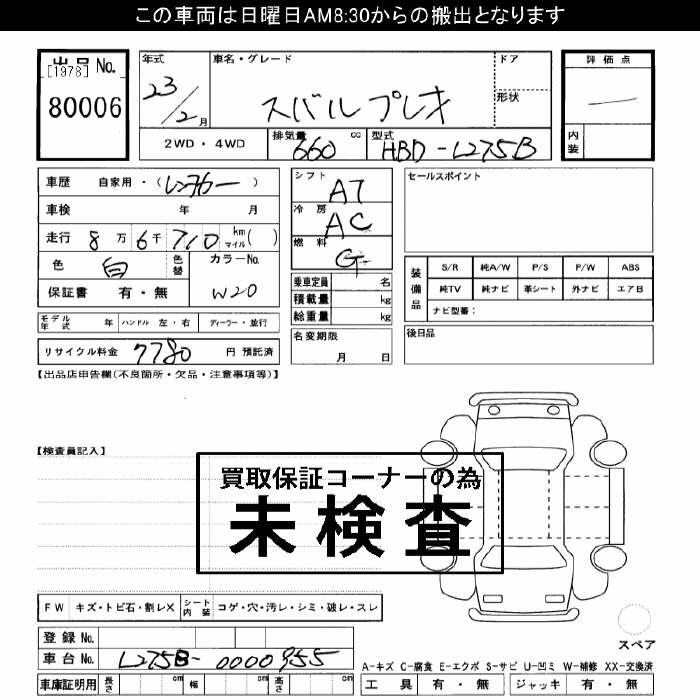 この車両は日曜日AM8:30からの搬出となります
出品 No.
[1978]
80006
年式
23/2月
車名・グレード
スバルプレオ
ドア
形状
評価点
内装
2WD・4WD
排気量 cc
660
型式
HBD-L275B
車歴 自家用・(レンタカー)
車検 年 月
走行 8万6千710 km マイル( )
色 白 色替
カラーNo.
W20
保証書 有・無
シフト
AT
冷房
AC
燃料
G
乗車定員 名
積載量 kg
総重量 kg
名変期限
月 日
セールスポイント
装備品
S/R 純A/W P/S P/W ABS
純TV 純ナビ 革シート 外ナビ エアB
ナビ型番:
後日品
モデル年式 年 ハンドル 左・右 ディーラー・並行
リサイクル料金 7780 円 預託済
【出品店申告欄(不良箇所・欠品・注意事項等)】
【検査員記入】
買取保証コーナーの為
未検査
FW キズ・トビ石・割レX シート内装 コゲ・穴・汚レ・シミ・破レ・スレ
登録 No.
車台 No. L275B-0000955
車庫証明用 長さ cm 幅 cm 高さ cm
スペア
A-キズ C-腐食 E-エクボ S-サビ U-凹ミ W-補修 XX-交換済
工具 有・無 ジャッキ 有・無